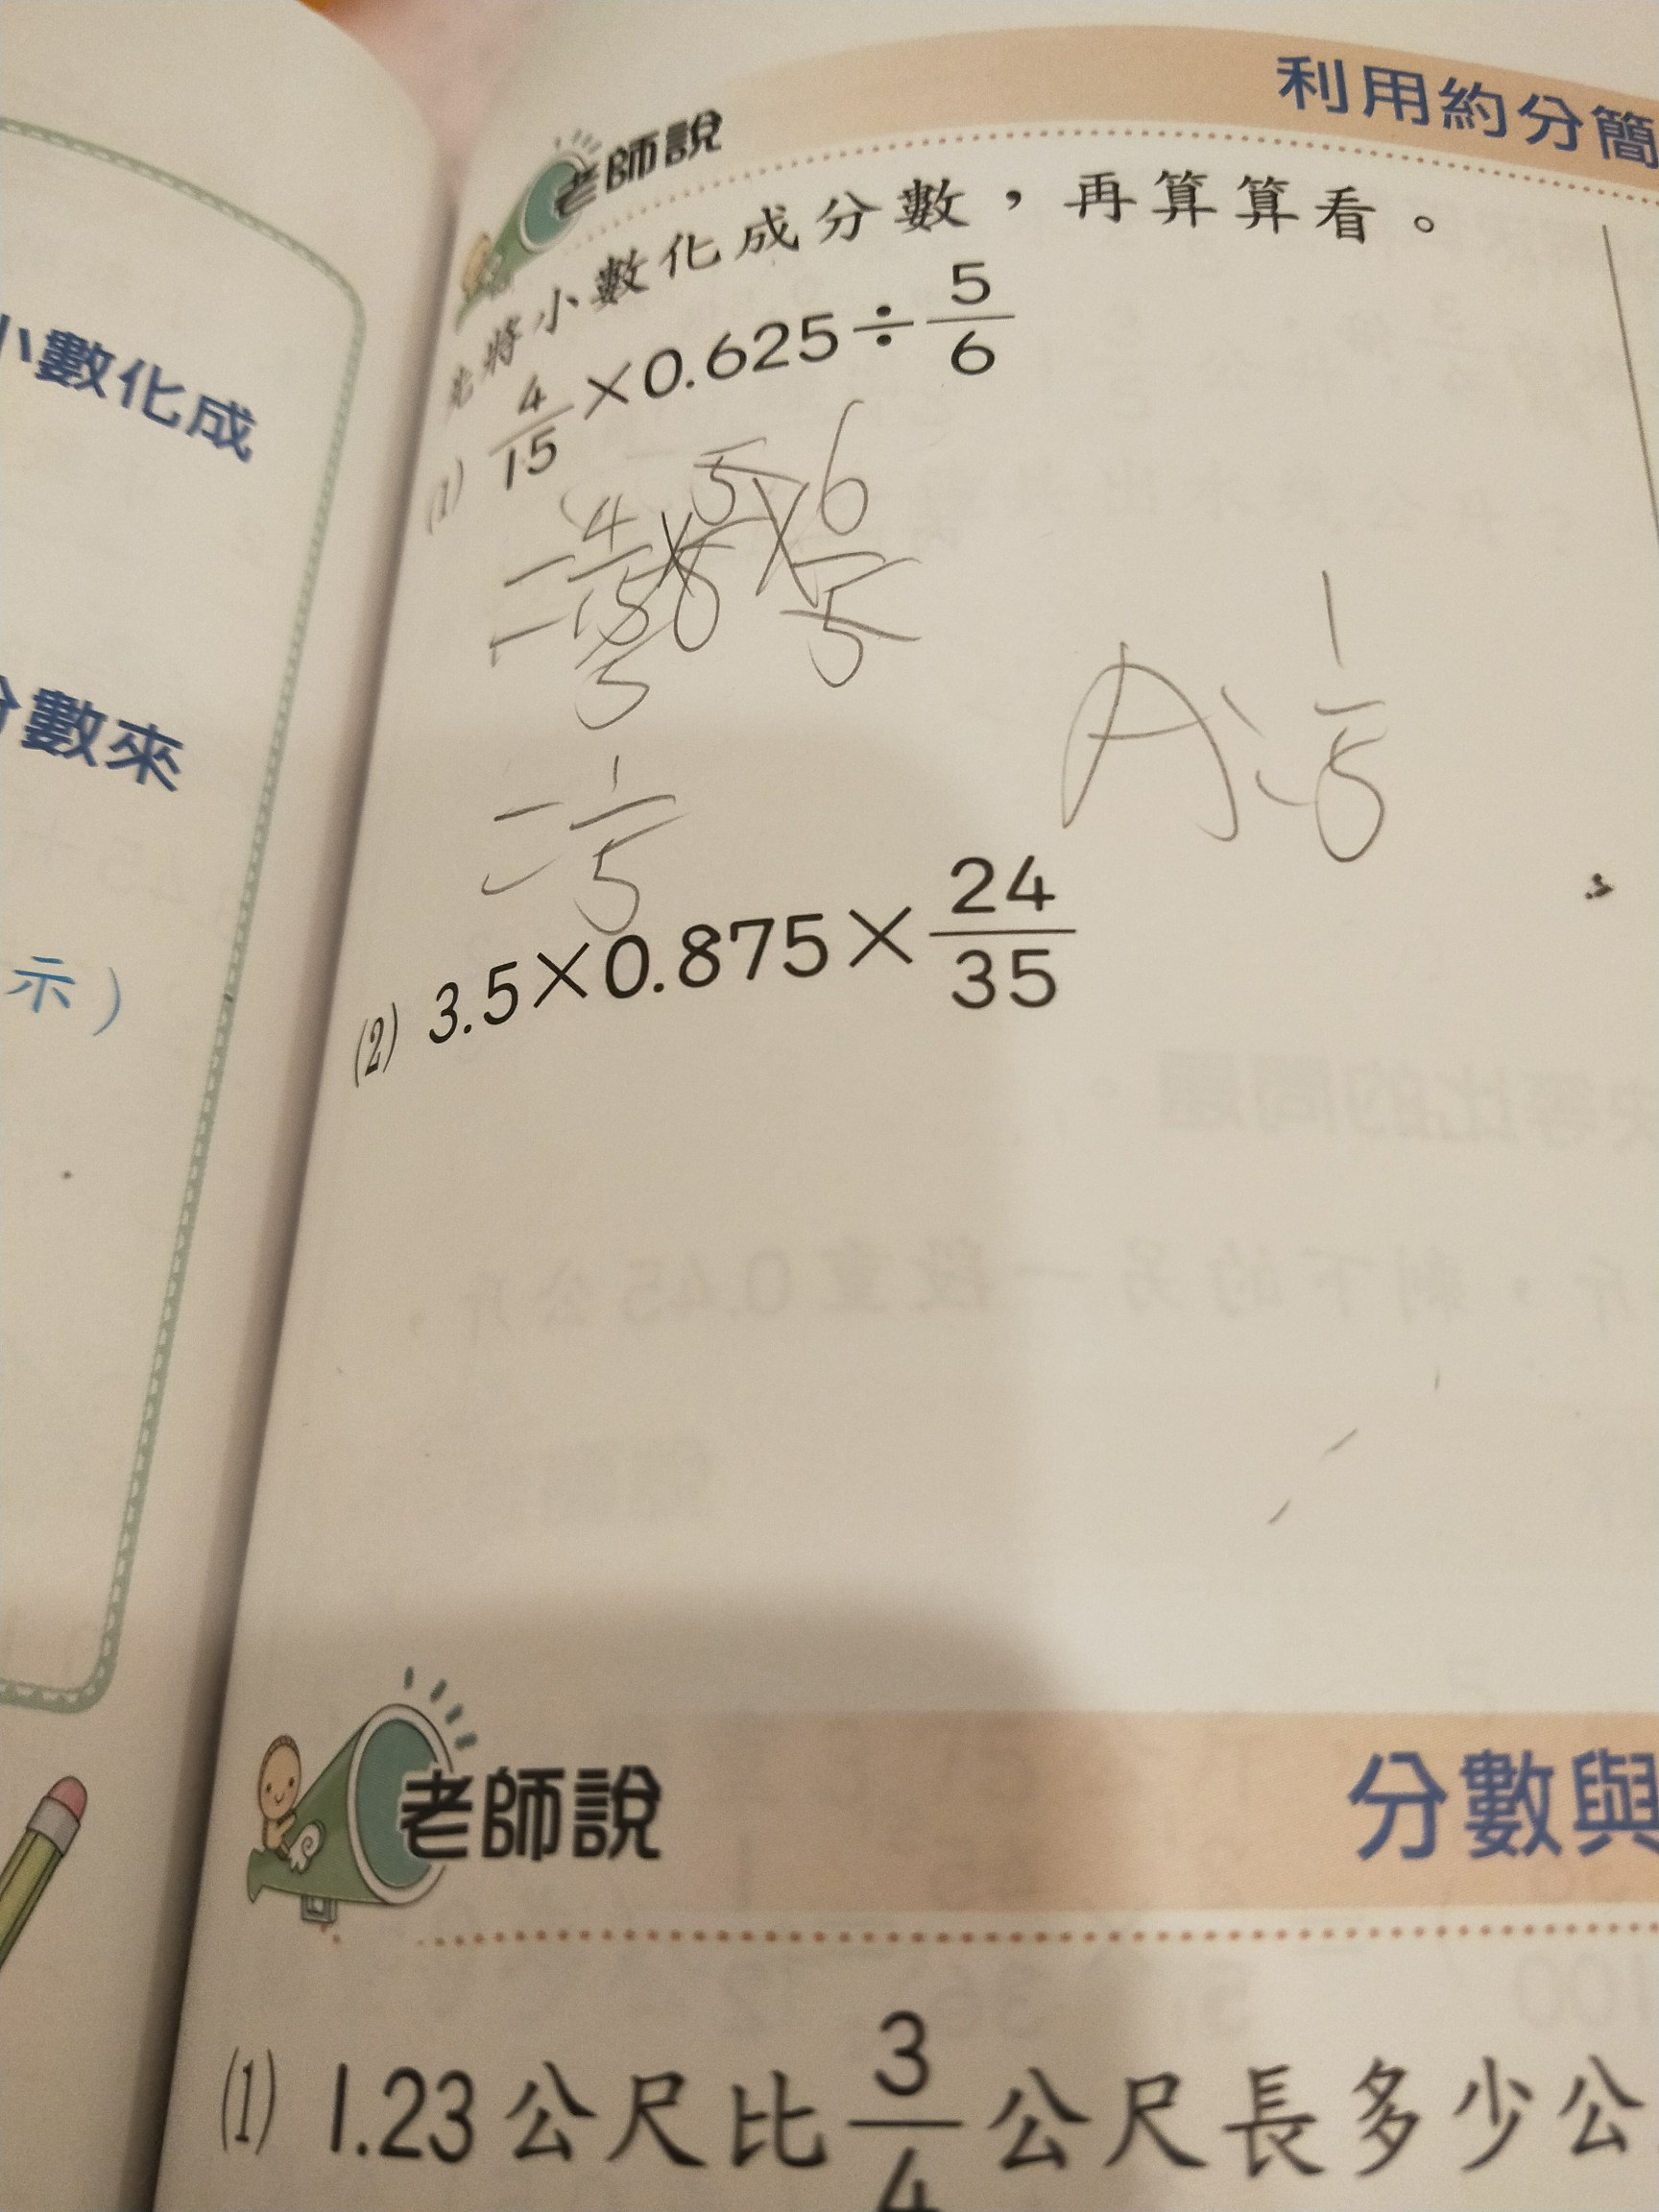 小數化成
分數來
示）
利用約分簡
老師說
先將小數化成分數，再算算看。
(1) 4/15 × 0.625 ÷ 5/6
= 4/15 × 5/8 × 6/5
5
= 1/5
A: 1/5
(2) 3.5 × 0.875 × 24/35
老師說
分數與
(1) 1.23公尺比 3/4 公尺長多少公